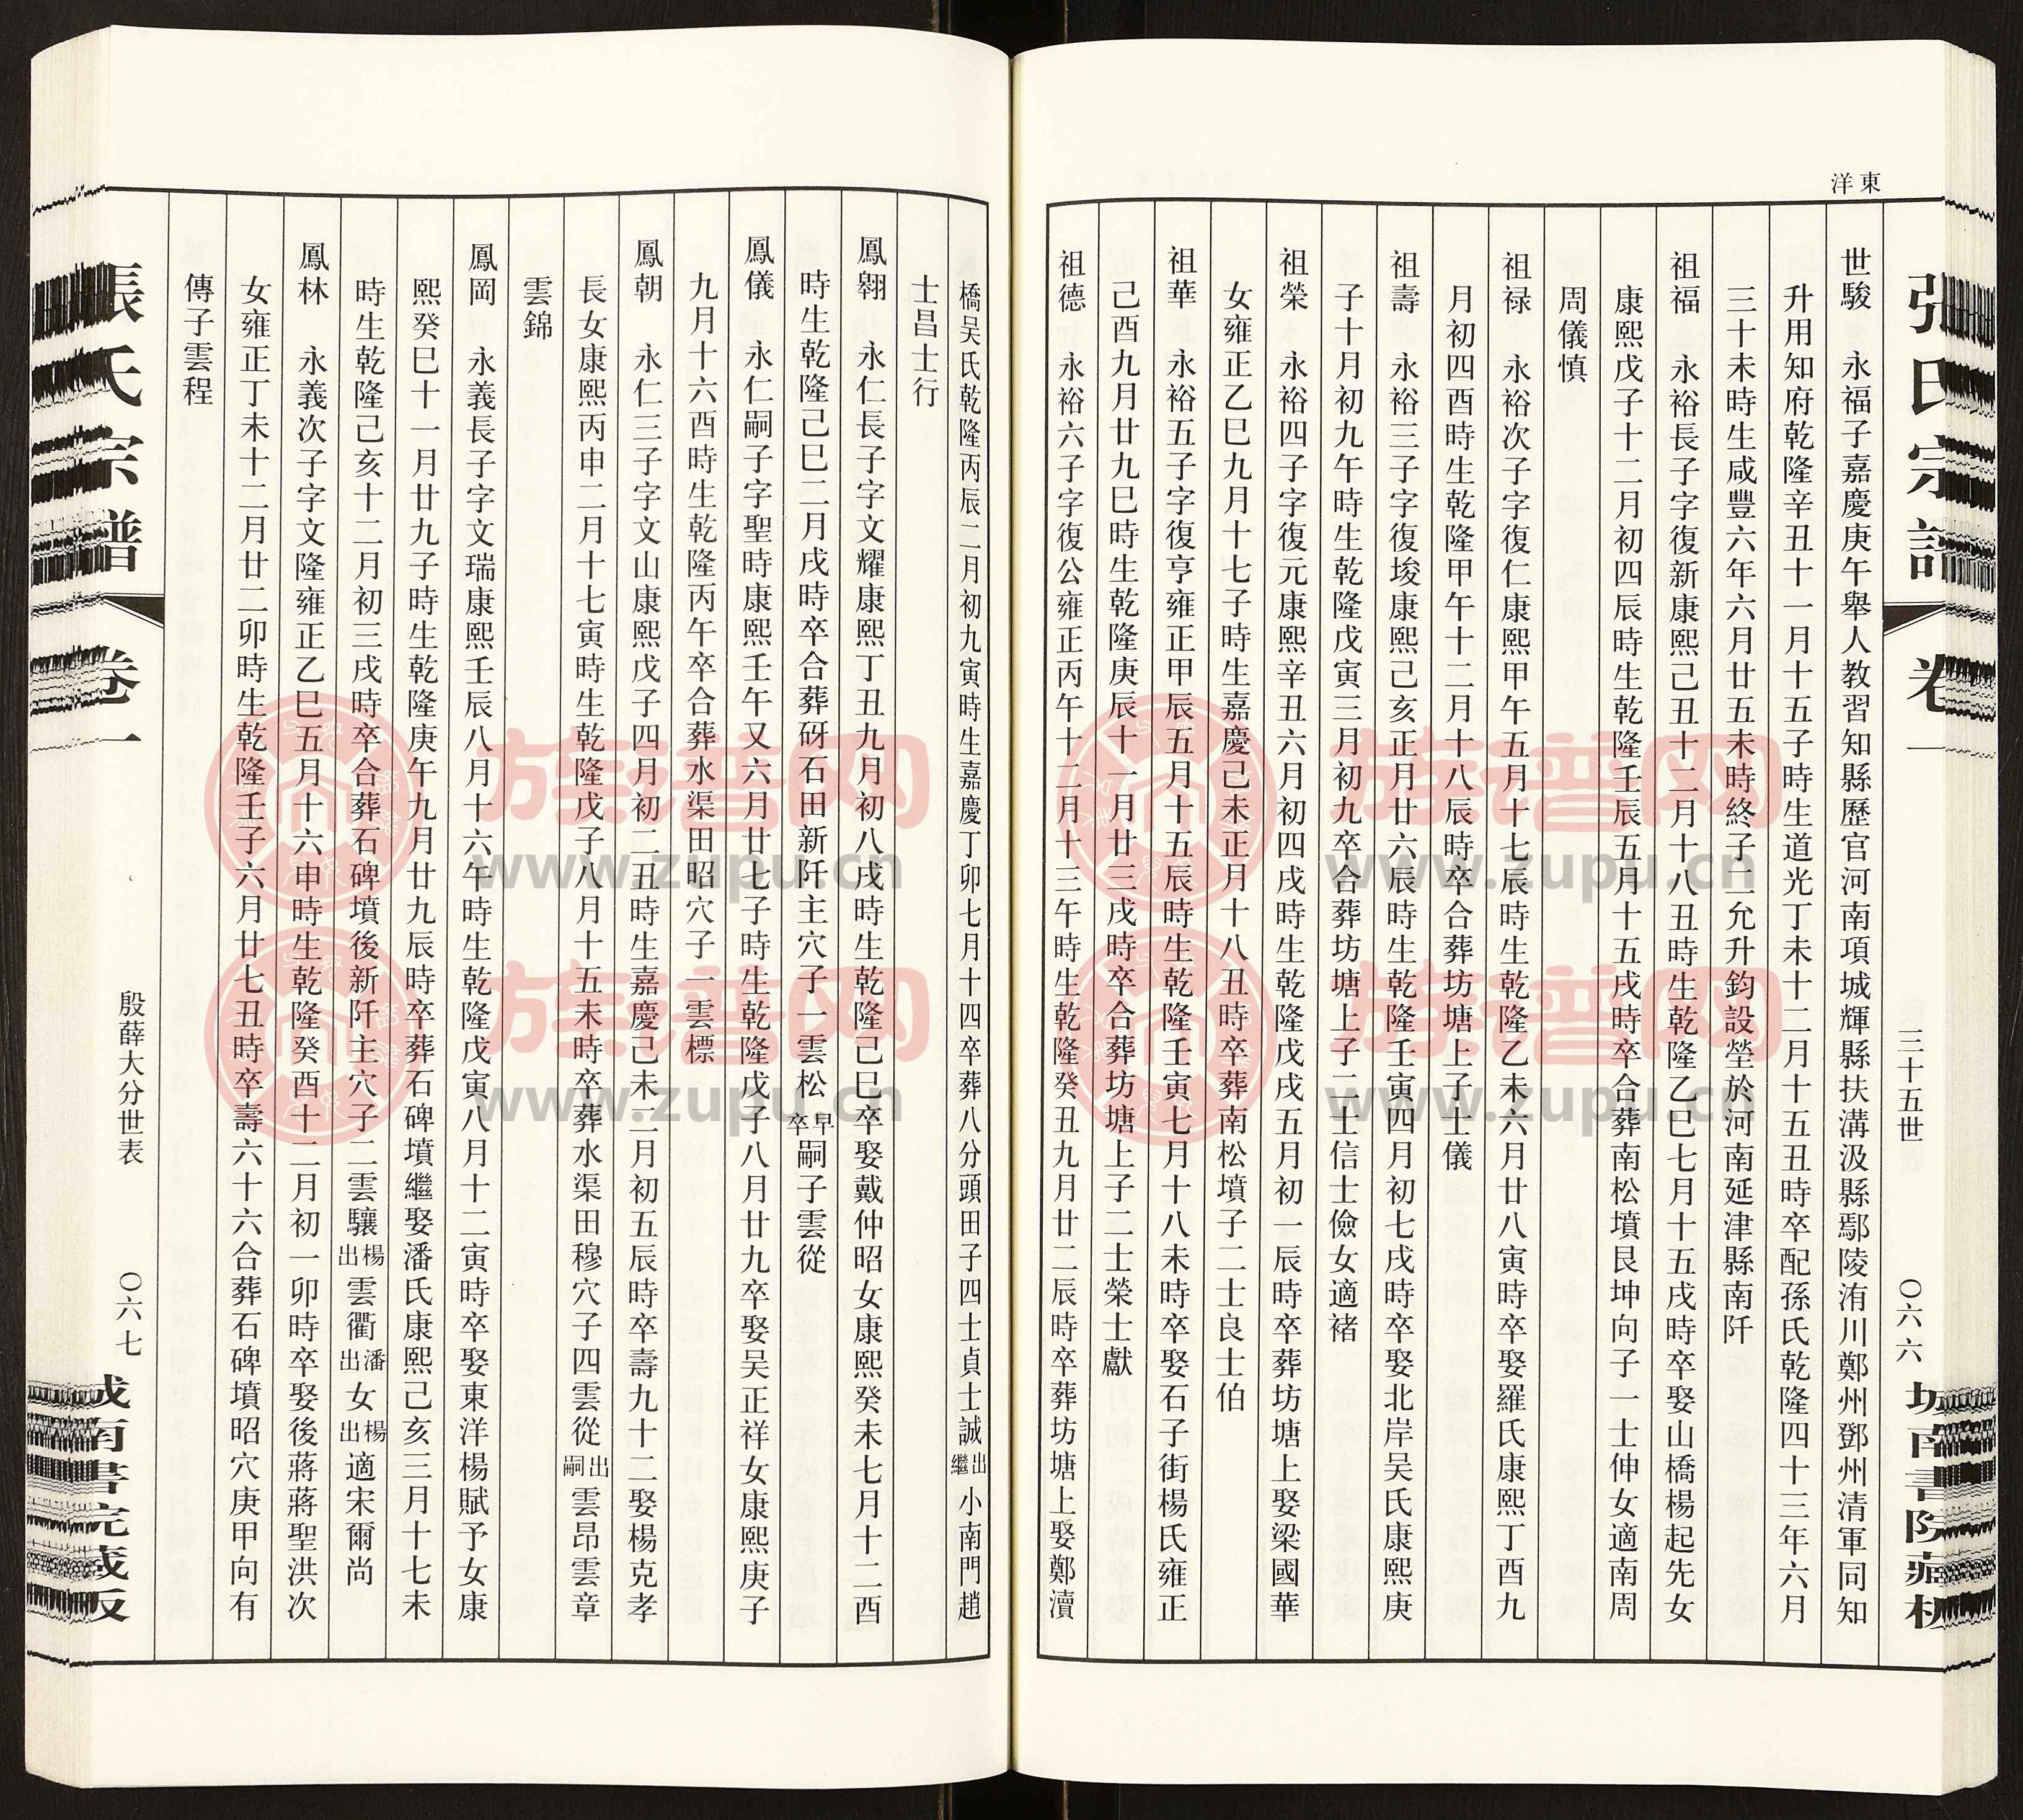 張氏宗譜 卷一 三十五世 〇六六 城南書院藏板
東洋
世駿 永福子嘉慶庚午舉人教習知縣歷官河南項城輝縣扶溝汲縣鄢陵洧川鄭州鄧州清軍同知
升用知府乾隆辛丑十一月十五子時生道光丁未十二月十五丑時卒配孫氏乾隆四十三年六月
三十未時生咸豐六年六月廿五未時終子二允升鈞設塋於河南延津縣南阡
祖福 永裕長子字復新康熙己丑十二月十八丑時生乾隆乙巳七月十五戌時卒娶山橋楊起先女
康熙戊子十二月初四辰時生乾隆壬辰五月十五戌時卒合葬南松墳艮坤向子一士伸女適南周
周儀慎
祖禄 永裕次子字復仁康熙甲午五月十七辰時生乾隆乙未六月廿八寅時卒娶羅氏康熙丁酉九
月初四酉時生乾隆甲午十二月十八辰時卒合葬坊塘上子士儀
祖壽 永裕三子字復埈康熙己亥正月廿六辰時生乾隆壬寅四月初七戌時卒娶北岸吴氏康熙庚
子十月初九午時生乾隆戊寅三月初九卒合葬坊塘上子二士信士儉女適褚
祖榮 永裕四子字復元康熙辛丑六月初四戌時生乾隆戊戌五月初一辰時卒葬坊塘上娶梁國華
女雍正乙巳九月十七子時生嘉慶己未正月十八丑時卒葬南松墳子二士良士伯
祖華 永裕五子字復亨雍正甲辰五月十五辰時生乾隆壬寅七月十八未時卒娶石子街楊氏雍正
己酉九月廿九巳時生乾隆庚辰十一月廿三戌時卒合葬坊塘上子二士榮士獻
祖德 永裕六子字復公雍正丙午十二月十三午時生乾隆癸丑九月廿二辰時卒葬坊塘上娶鄭瀆
橋吴氏乾隆丙辰二月初九寅時生嘉慶丁卯七月十四卒葬八分頭田子四士貞士誠出繼小南門趙
士昌士行
鳳翱 永仁長子字文耀康熙丁丑九月初八戌時生乾隆己巳卒娶戴仲昭女康熙癸未七月十二酉
時生乾隆己巳二月戌時卒合葬砑石田新阡主穴子一雲松早卒嗣子雲從
鳳儀 永仁嗣子字聖時康熙壬午又六月廿七子時生乾隆戊子八月廿九卒娶吴正祥女康熙庚子
九月十六酉時生乾隆丙午卒合葬水渠田昭穴子一雲標
鳳朝 永仁三子字文山康熙戊子四月初二丑時生嘉慶己未二月初五辰時卒壽九十二娶楊克孝
長女康熙丙申二月十七寅時生乾隆戊子八月十五未時卒葬水渠田穆穴子四雲從出嗣雲昂雲章
雲錦
鳳岡 永義長子字文瑞康熙壬辰八月十六午時生乾隆戊寅八月十二寅時卒娶東洋楊賦予女康
熙癸巳十一月廿九子時生乾隆庚午九月廿九辰時卒葬石碑墳繼娶潘氏康熙己亥三月十七未
時生乾隆己亥十二月初三戌時卒合葬石碑墳後新阡主穴子二雲驤楊出雲衢潘出女楊出適宋爾尚
鳳林 永義次子字文隆雍正乙巳五月十六申時生乾隆癸酉十二月初一卯時卒娶後蔣蔣聖洪次
女雍正丁未十二月廿二卯時生乾隆壬子六月廿七丑時卒壽六十六合葬石碑墳昭穴庚甲向有
傳子雲程
張氏宗譜 卷一 殷薛大分世表 〇六七 城南書院藏板